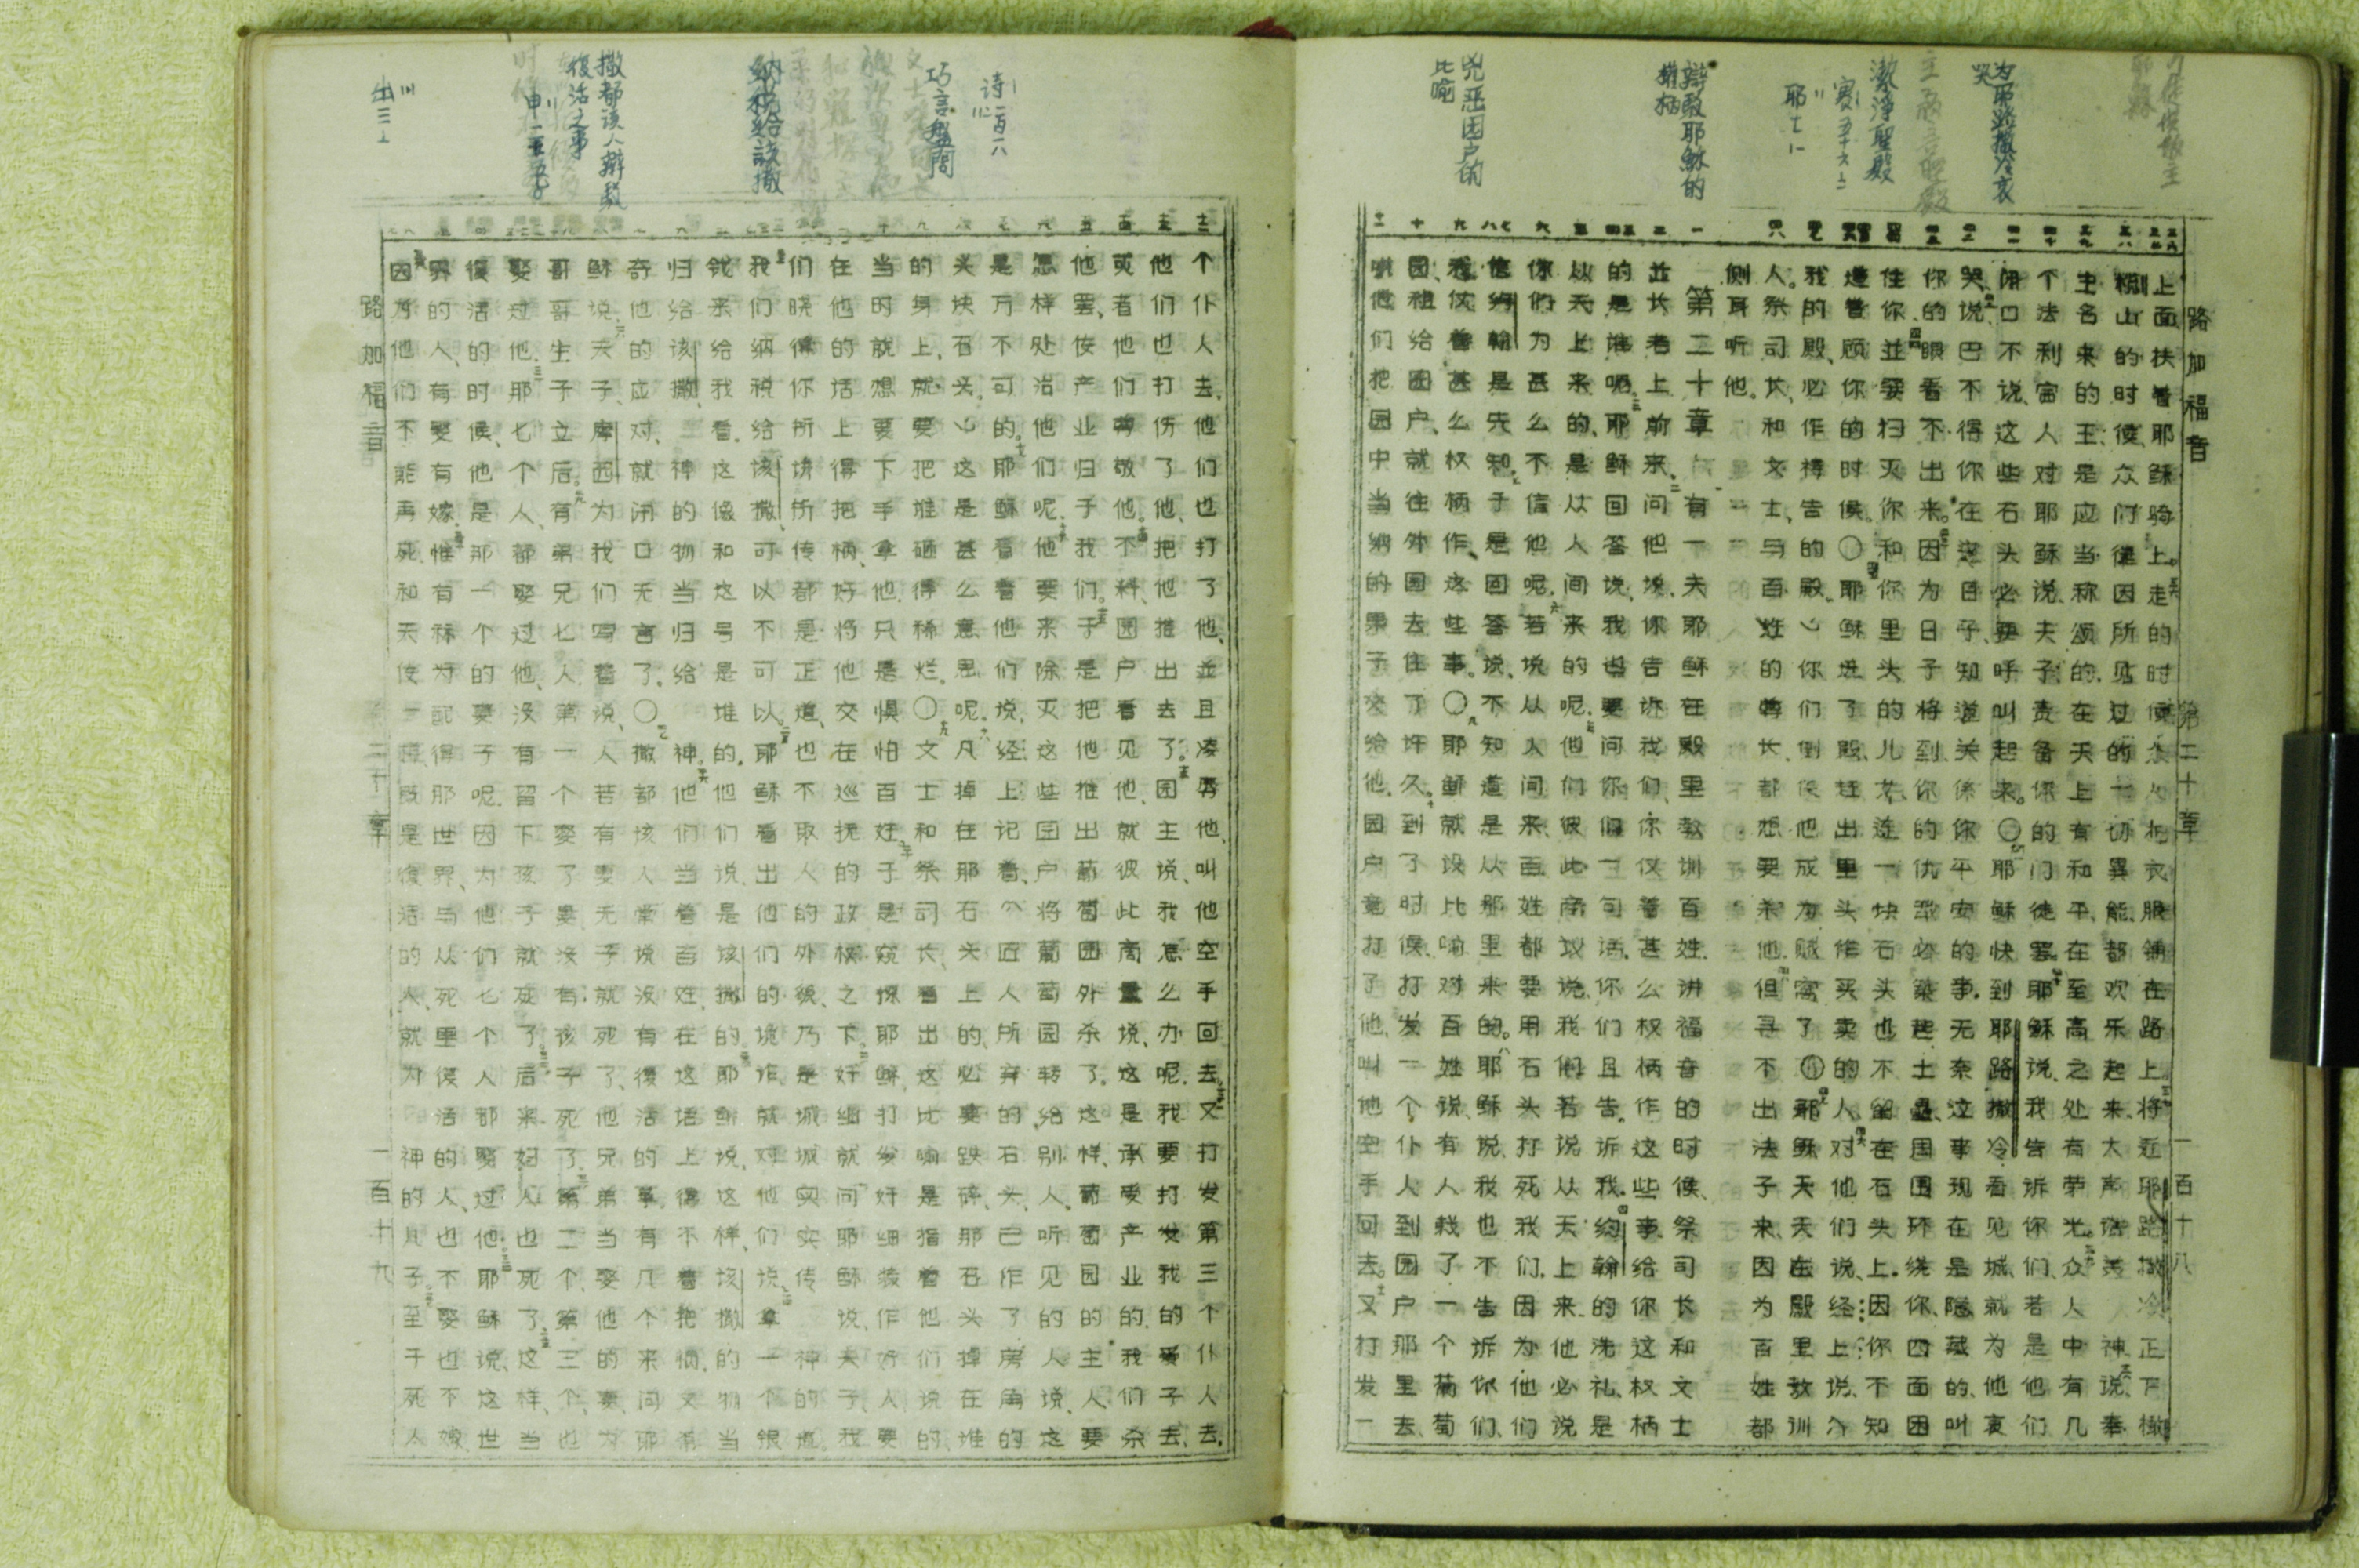 路加福音 第二十章 一百十八
为耶路撒冷哀哭
潔浄聖殿
耶七 11
辯駁耶稣的權柄
兇恶园户的比喻
上面扶着耶稣骑上。走的时候众人把衣服铺在路上将近耶路撒冷正下橄
榄山的时候众门徒因所见过的一切異能都欢乐起来大声讃美 神说奉
主名来的王是应当称颂的在天上有和平在至高之处有荣光。众人中有几
个法利赛人对耶稣说夫子责备你的门徒罢。耶稣说我告诉你们若是他们
闭口不说这些石头必要呼叫起来。〇耶稣快到耶路撒冷看见城就为他哀
哭说巴不得你在这日子知道关係你平安的事无奈这事现在是隐藏的叫
你的眼看不出来。因为日子将到你的仇必筑起土周围环绕你四面困
住你並要扫灭你和你里头的儿女连一块石头也不留在石头上因你不知
道眷顾你的时候。〇耶稣进了殿赶出里头作买卖的人对他们说经上说
我的殿必作祷告的殿你们倒使他成为贼窝了〇耶稣天天在殿里教训
人。祭司长和文士与百姓的尊长都想要杀他但寻不出法子来因为百姓都
侧耳听他。
第二十章 有一天耶稣在殿里教训百姓讲福音的时候祭司长和文士
並长老上前来问他说你告诉我们你仗着甚么权柄作这些事给你这权柄
的是谁呢。耶稣回答说我也要问你们一句话你们且告诉我。约翰的洗礼是
从天上来的是从人间来的呢。他们彼此商议说我们若说从天上来他必说
你们为甚么不信他呢。若说从人间来百姓都要用石头打死我们因为他们
信约翰是先知于是回答说不知道是从那里来的。耶稣说我也不告诉你们
我仗着甚么权柄作这些事。〇耶稣就设比喻对百姓说有人栽了一个葡萄
园租给园户就往外国去住了许久。到了时候打发一个仆人到园户那里去
叫他们把园中当纳的果子交给他园户竟打了他叫他空手回去。又打发一
诗一百十八
巧言盤問
納税給該撒
撒都该人辯駁復活之事
申二十五
出三
个仆人去他们也打了他並且凌辱他叫他空手回去又打发第三个仆人去
他们也打伤了他把他推出去了。园主说我怎么办呢我要打发我的爱子去
或者他们尊敬他。不料园户看见他就彼此商量说这是承受产业的我们杀
他罢使产业归于我们。于是把他推出葡萄园外杀了。这样葡萄园的主人要
怎样处治他们呢他要来除灭这些园户将葡萄园转给别人。听见的人说这
是万不可的。耶稣看着他们说经上记着匠人所弃的石头已作了房角的
头块石头。这是甚么意思呢。凡掉在那石头上的必要跌碎那石头掉在谁的
身上就要把谁砸得稀烂。〇文士和祭司长看出这比喻是指着他们说的
当时就想要下手拿他只是惧怕百姓。于是窥探耶稣打发奸细装作好人要
在他的话上得把柄好将他交在巡抚的政权之下。奸细就问耶稣说夫子我
们晓得你所讲所传都是正道也不取人的外貌乃是诚诚实实传 神的道。
我们纳税给该撒可以不可以。耶稣看出他们的诡诈就对他们说拿一个银
钱来给我看这像和这号是谁的。他们说是该撒的。耶稣说这样该撒的物当
归给该撒 神的物当归给 神。他们当着百姓在这话上得不着把柄又希
奇他的应对就闭口无言了。〇撒都该人常说没有復活的事有几个来问耶
稣说夫子摩西为我们写着说人若有妻无子就死了他兄弟当娶他的妻为
哥哥生子立后。有弟兄七人第一个娶了妻没有孩子死了第二个第三个也
娶过他。那七个人都娶过他没有留下孩子就死了后来妇人也死了。这样当
復活的时候他是那一个的妻子呢因为他们七个人都娶过他。耶稣说这世
界的人有娶有嫁惟有算为配得那世界与从死里復活的人也不娶也不嫁
因为他们不能再死和天使一样既是復活的人就为 神的儿子至于死人
路加福音 第二十章 一百十九